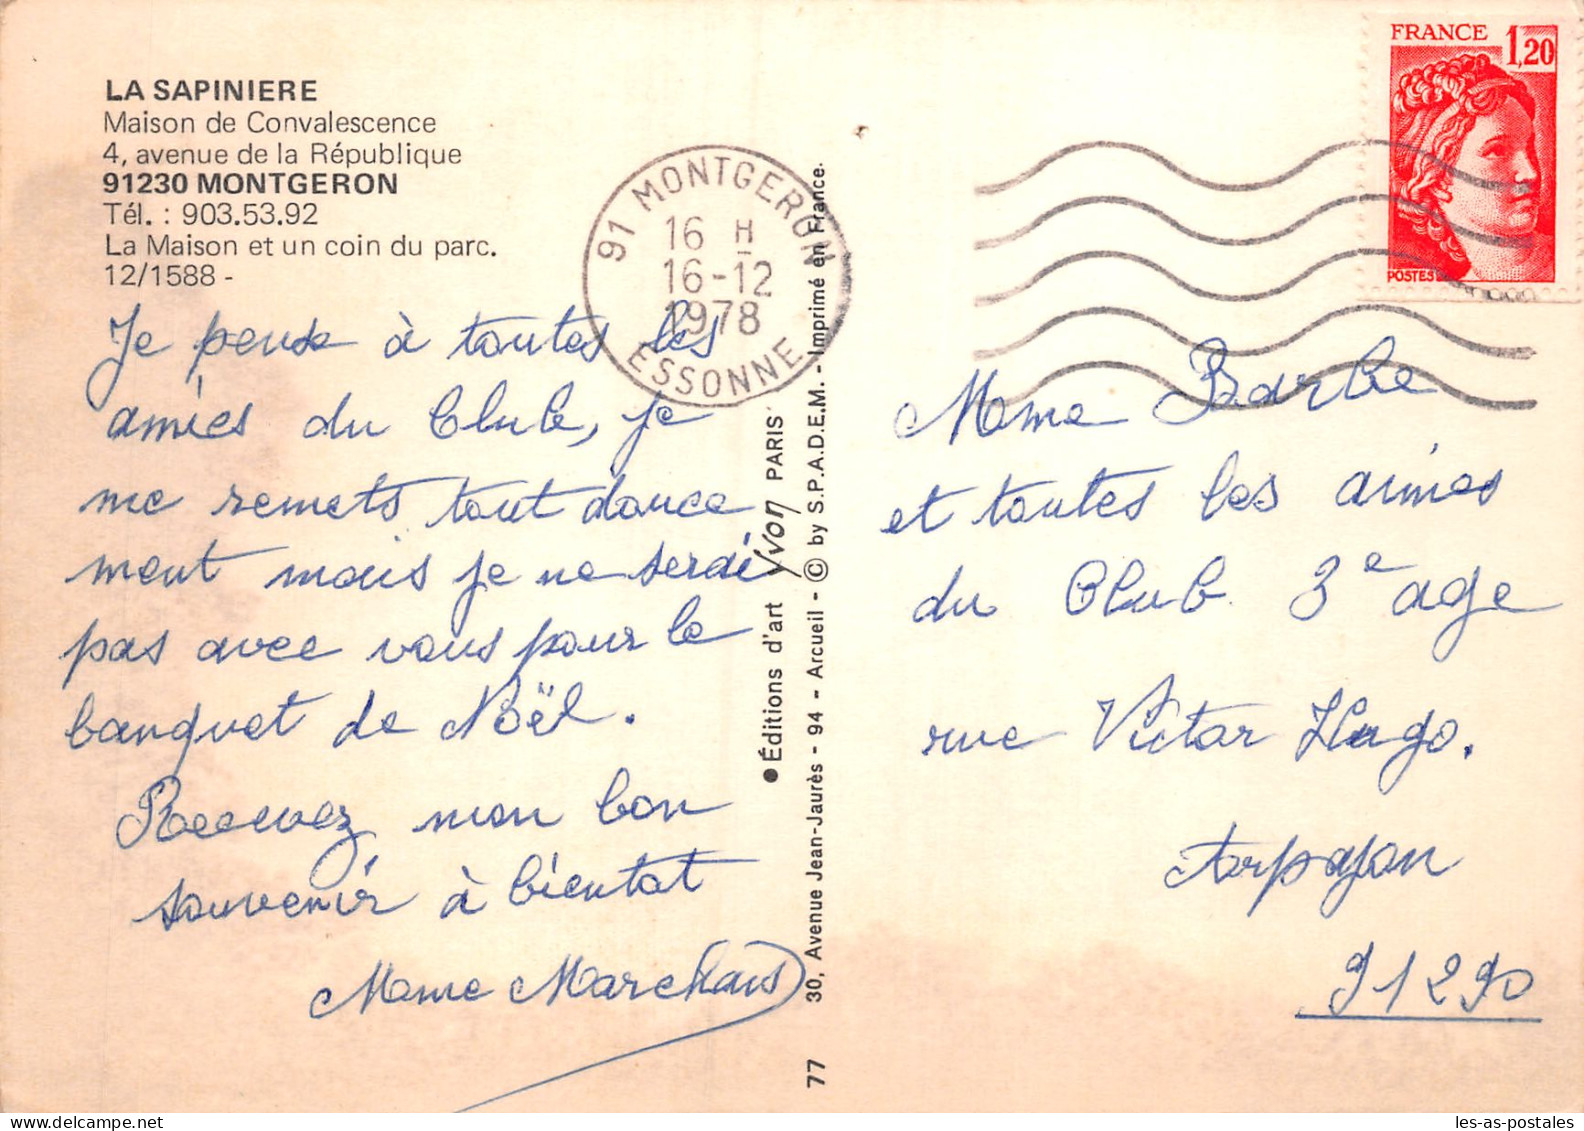 LA SAPINIERE
Maison de Convalescence
4, avenue de la République
91230 MONTGERON
Tél. : 903.53.92
La Maison et un coin du parc.
12/1588 -
Je pense à toutes les
amies du Club, je
me remets tout douce
ment mais je ne serai
pas avec vous pour le
banquet de Noël.
Recevez mon bon
souvenir à bientot
Mme Marchais
91 MONTGERON
16 H
16-12
1978
ESSONNE
●Éditions d'art Yvon PARIS
30, Avenue Jean-Jaurès - 94 - Arcueil - © by S.P.A.D.E.M. - Imprimé en France.
77
FRANCE 1,20
POSTES
Mme Barbe
et toutes les amies
du Club 3e age
rue Victor Hugo.
Arpajon
91290
les-as-postales